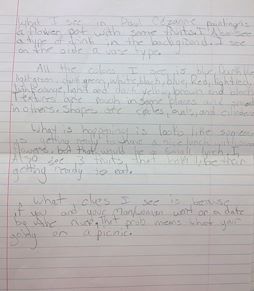 What I see in Paul Cézanne painting is
a flower pot with some fruits. I also see
a type of drink in the background. I see
on the side a vase type.
All the colors I see is blue, burple
light green, dark green, white, black, blue, Red, light
orange, and dark yellow, brown and black.
Textures are rough in some places and
in others. Shapes are circles, ovals, and
What is happening is looks like someone
is getting ready to have a nice lunch with
flowers. but that would be a small lunch. I
Also see 3 fruits that look like their
getting ready to eat.
What clues I see is because
if you and your man/women went on a date
by the river, that prob means what your
going on a picnic.